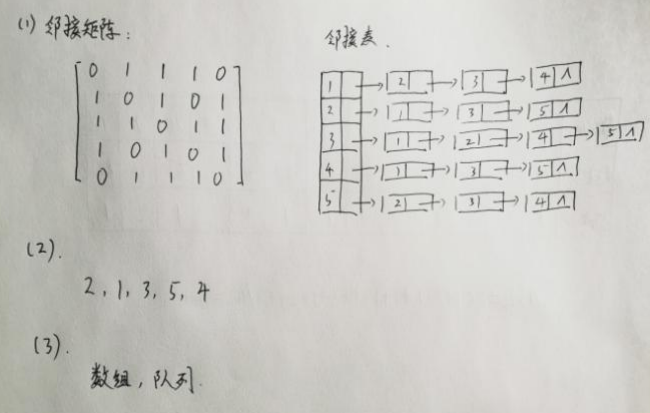 (1) 邻接矩阵:
0 1 1 1 0
1 0 1 0 1
1 1 0 1 1
1 0 1 0 1
0 1 1 1 0
邻接表.
1 → 2 → 3 → 4 ∧
2 → 1 → 3 → 5 ∧
3 → 1 → 2 → 4 → 5 ∧
4 → 1 → 3 → 5 ∧
5 → 2 → 3 → 4 ∧
(2).
2, 1, 3, 5, 4
(3).
数组, 队列.